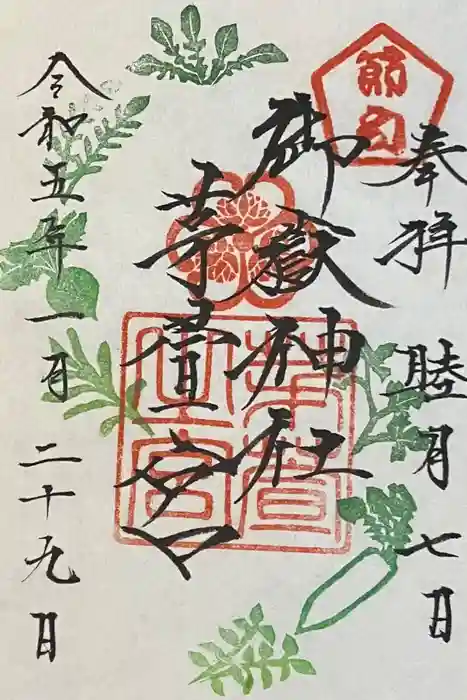 奉拝 睦月七日
御嶽神社
茅萱宮
令和五年一月二十九日
節句